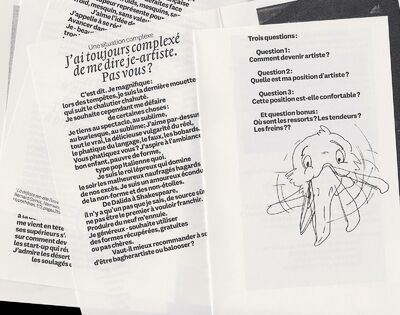 Une situation complexe
J'ai toujours complexé
de me dire je-artiste.
Pas vous ?
C'est dit. Je magnifique :
lors des tempêtes, je suis la dernière mouette
qui suit le chalutier chahuté.
Je souhaite cependant me défaire
de certaines choses :
Je tiens au spectacle, au sublime,
au burlesque, au sublime; J'aime par-dessus
tout le vrai, la délicieuse vulgarité du réel,
le phatique du langage, le faux, les bobards.
Vous phatiquez vous ? J'aspire à l'ambiance
bon enfant, pauvre de forme,
type pop italienne quoi.
Je suis le roi lépreux qui domine
le soir les malheureux naufragés hagards
de nos excès. Je suis un amoureux éconduit
de la non-forme et des non-étoiles.
De Dalida à Shakespeare,
il n'y a qu'un pas que je sais, de source sûre
ne pas être le premier à vouloir franchir.
Produire du neuf m'ennuie.
Je généreux - souhaite utiliser
des formes récupérées, gratuites
ou pas chères.
Vaut-il mieux recommander à so
d'être bagherartiste ou balooser ?
Trois questions :
Question 1 :
Comment devenir artiste ?
Question 2 :
Quelle est ma position d'artiste ?
Question 3 :
Cette position est-elle confortable ?
Et question bonus :
Où sont les ressorts ? Les tendeurs ?
Les freins ??
me vient en tête
ses supérieurs s'
sur comment dev
les start-up qui rés
J'admire les désert
les soulagés